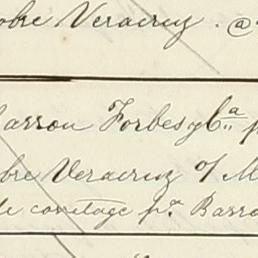 obre Veracruz . @
arron Forbes y Cª p
obre Veracruz o/ M
de corretage pª Barro